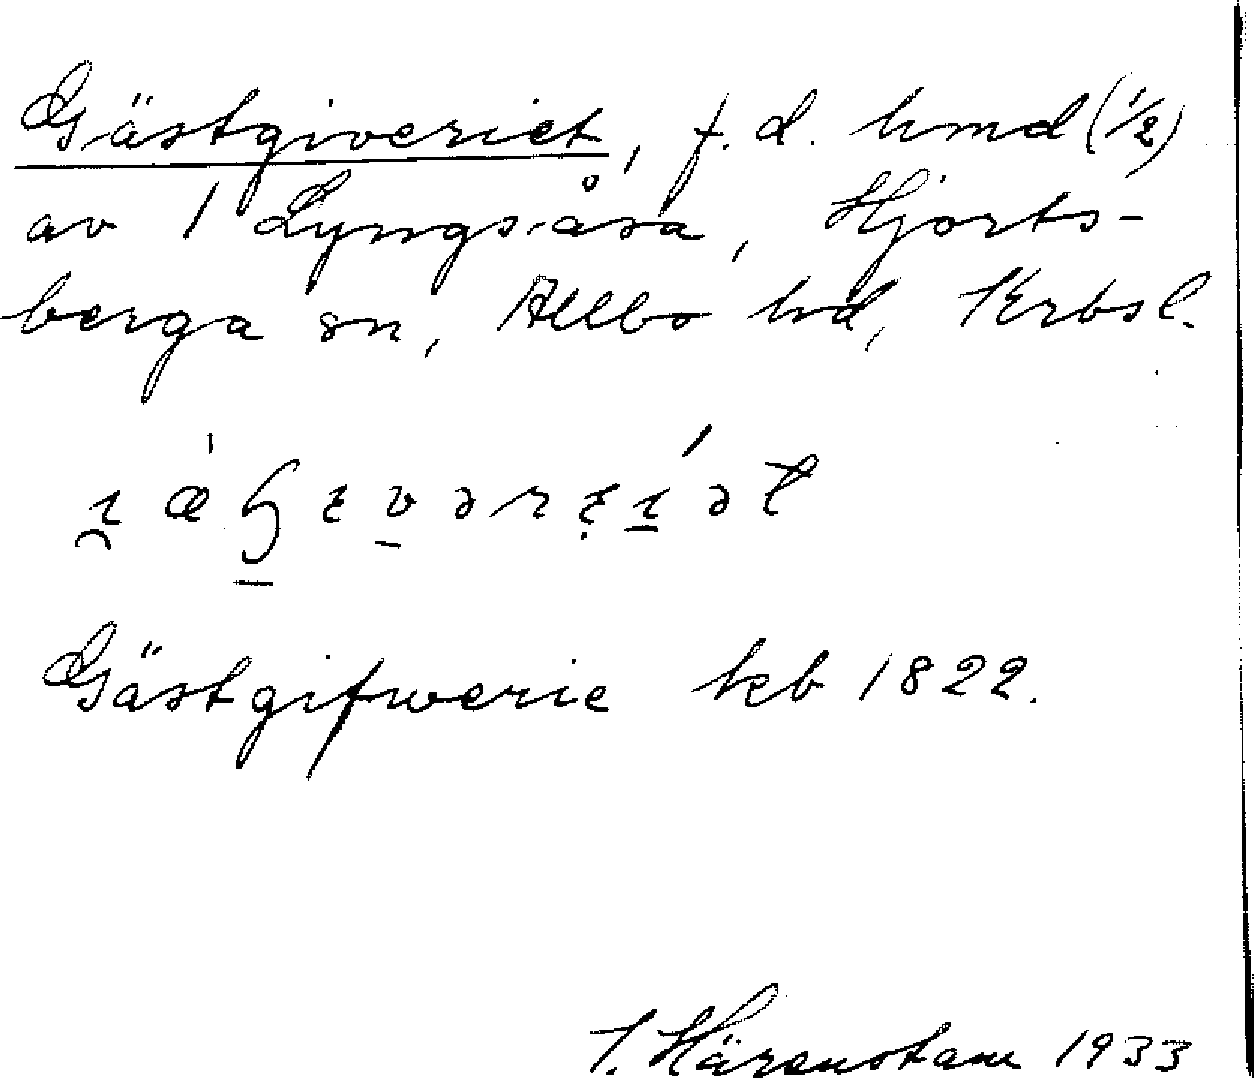 Gästgiveriet, f.d. hmd (1/2)
av 1 Lyngsåsa, Hjorts-
berga sn, Allbo hd, Krbsl.
Gästgifwerie kb 1822.
Härenstam 1933